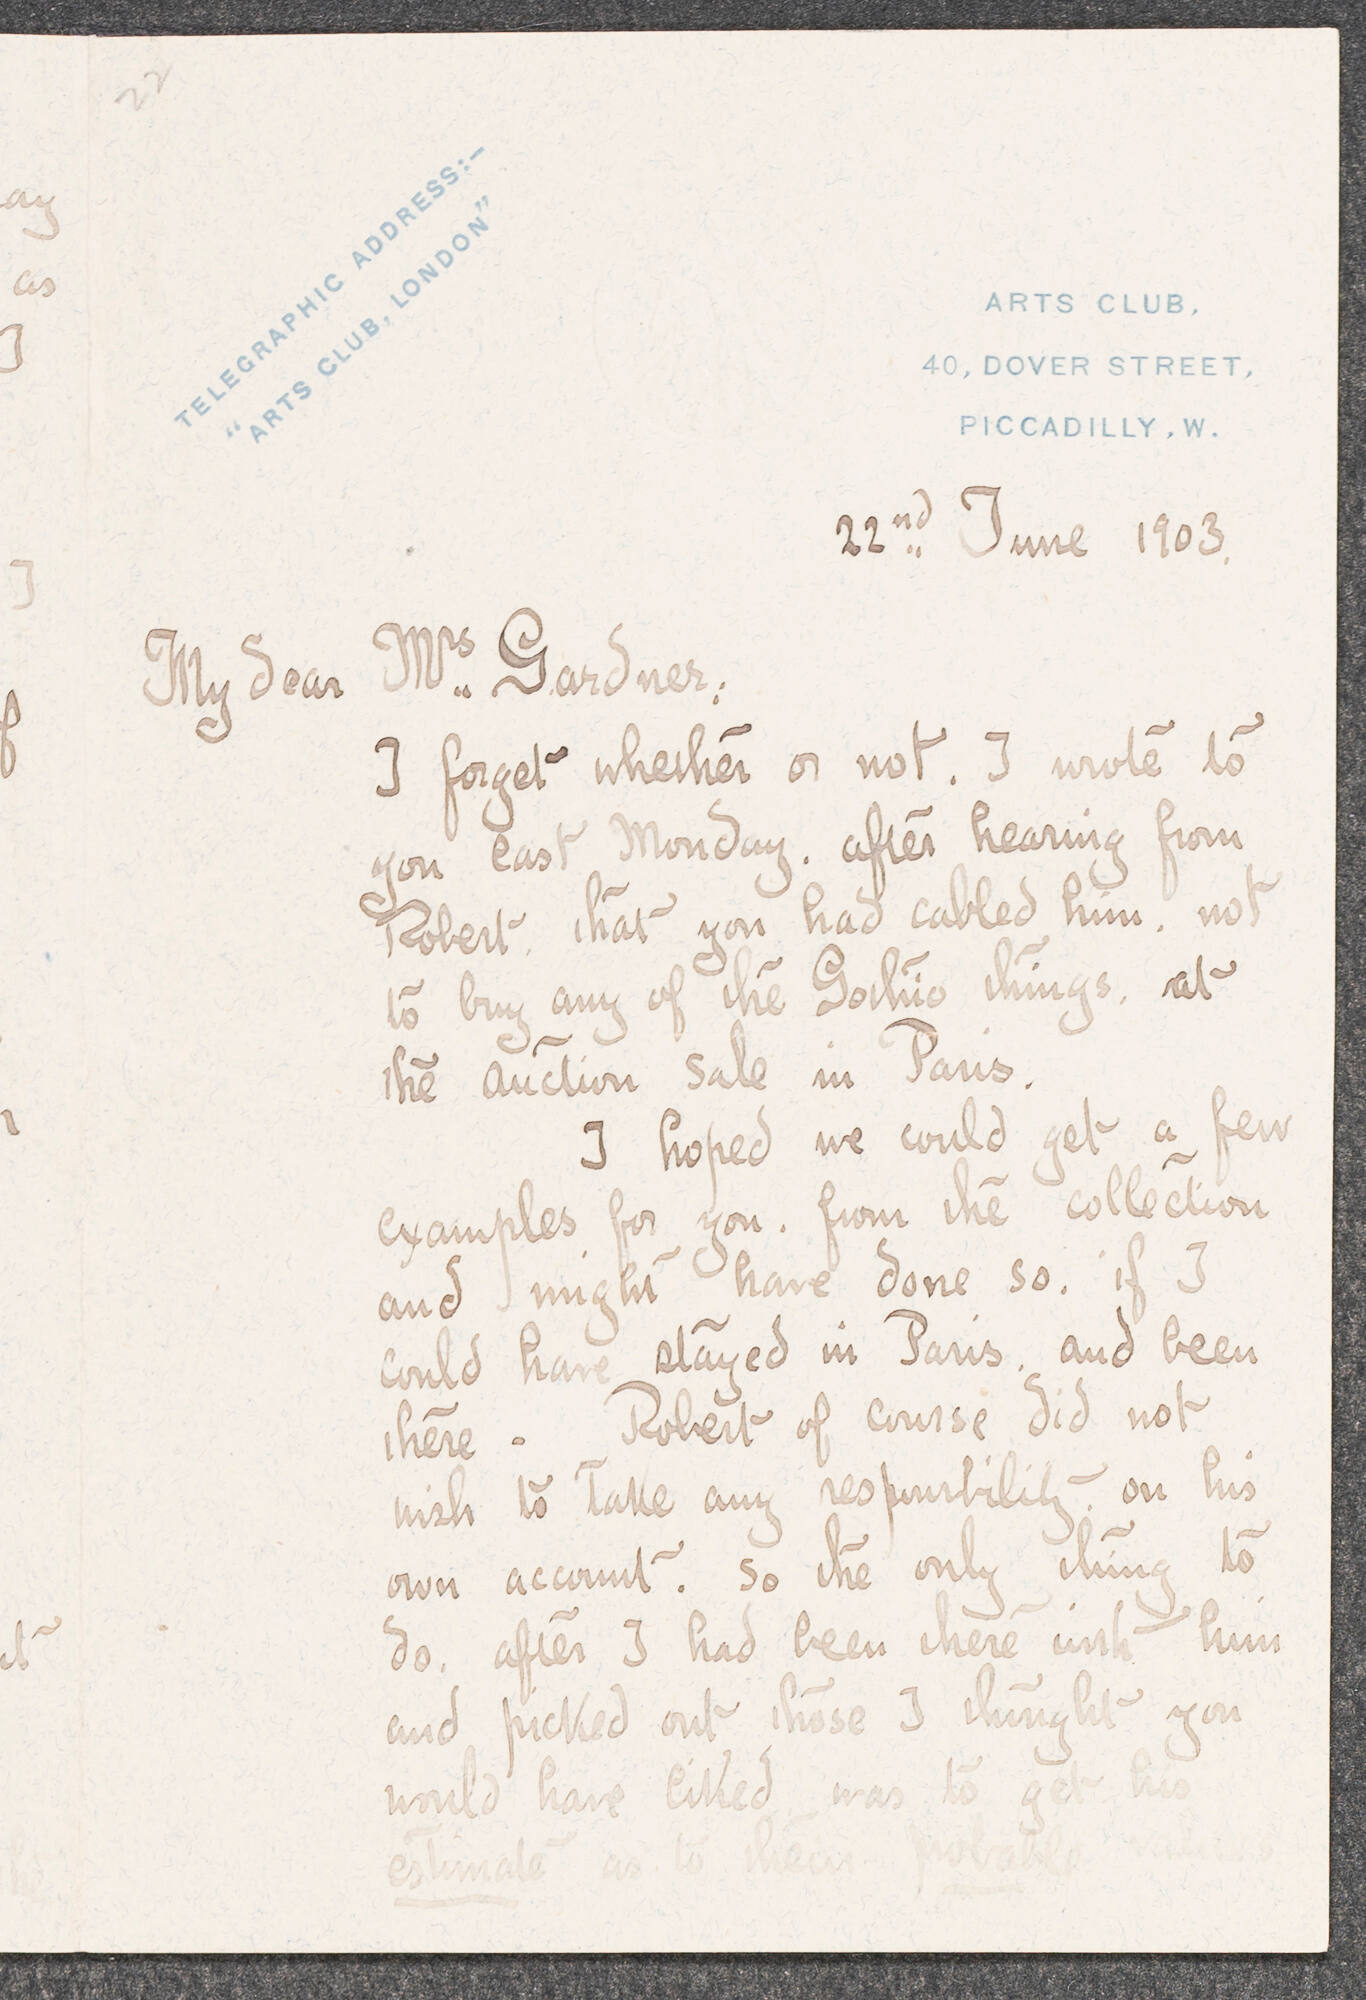 22
TELEGRAPHIC ADDRESS:-
"ARTS CLUB, LONDON"
ARTS CLUB,
40, DOVER STREET,
PICCADILLY, W.
22nd June 1903.
My dear Mrs. Gardner,
I forget whether or not. I wrote to
you last Monday. after hearing from
Robert. that you had cabled him. not
to buy any of the Gothic things. at
the auction sale in Paris.
I hoped we could get a few
examples for you. from the collection
and might have done so. if I
could have stayed in Paris. and been
there - Robert of course did not
wish to take any responsibility. on his
own account. so the only thing to
do. after I had been there with him
and picked out those I thought you
would have liked was to get his
estimate as to their probable
ay
as
I
I
f